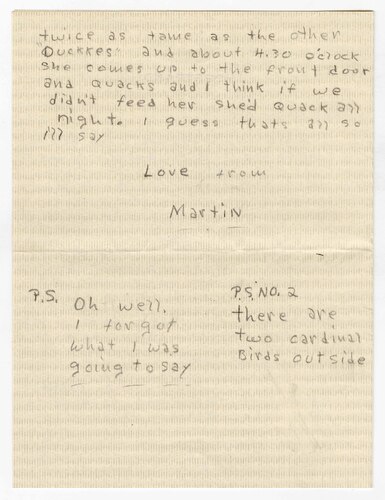 twice as tame as the other
"Duckkes" and about 4.30 o'clock
she comes up to the front door
and Quacks and I think if we
didn't feed her she'd Quack all
night. I guess thats all so
I'll say
Love from
Martin
P.S. Oh well,
I forgot
what I was
going to say
P.S. NO. 2
there are
two cardinal
Birds outside